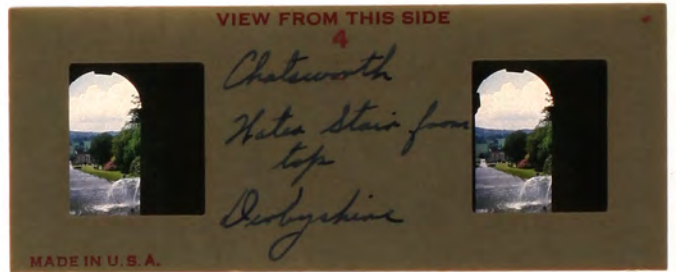 VIEW FROM THIS SIDE
4
Chatsworth
Water Stair from
top
Derbyshire
MADE IN U.S.A.